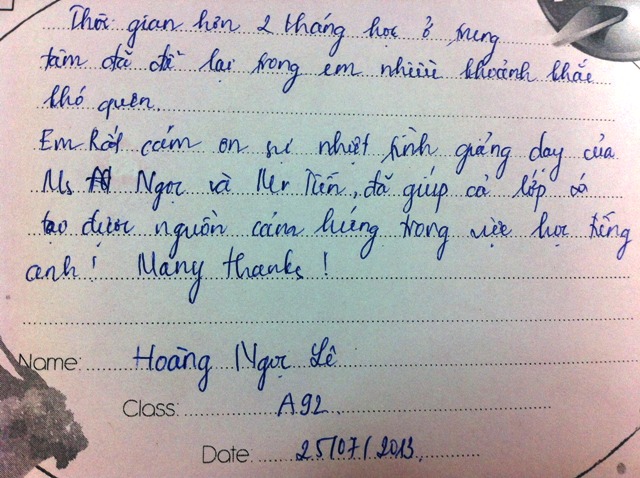 Thời gian hơn 2 tháng học ở trung
tâm đã để lại trong em nhiều khoảnh khắc
khó quên.
Em rất cám ơn sự nhiệt tình giảng dạy của
Ms Ngọc và Mr Tiến, đã giúp cả lớp có
tạo được nguồn cảm hứng trong việc học tiếng
anh! Many thanks!
Name: Hoàng Ngọc Lê
Class: A92
Date: 25/07/2013